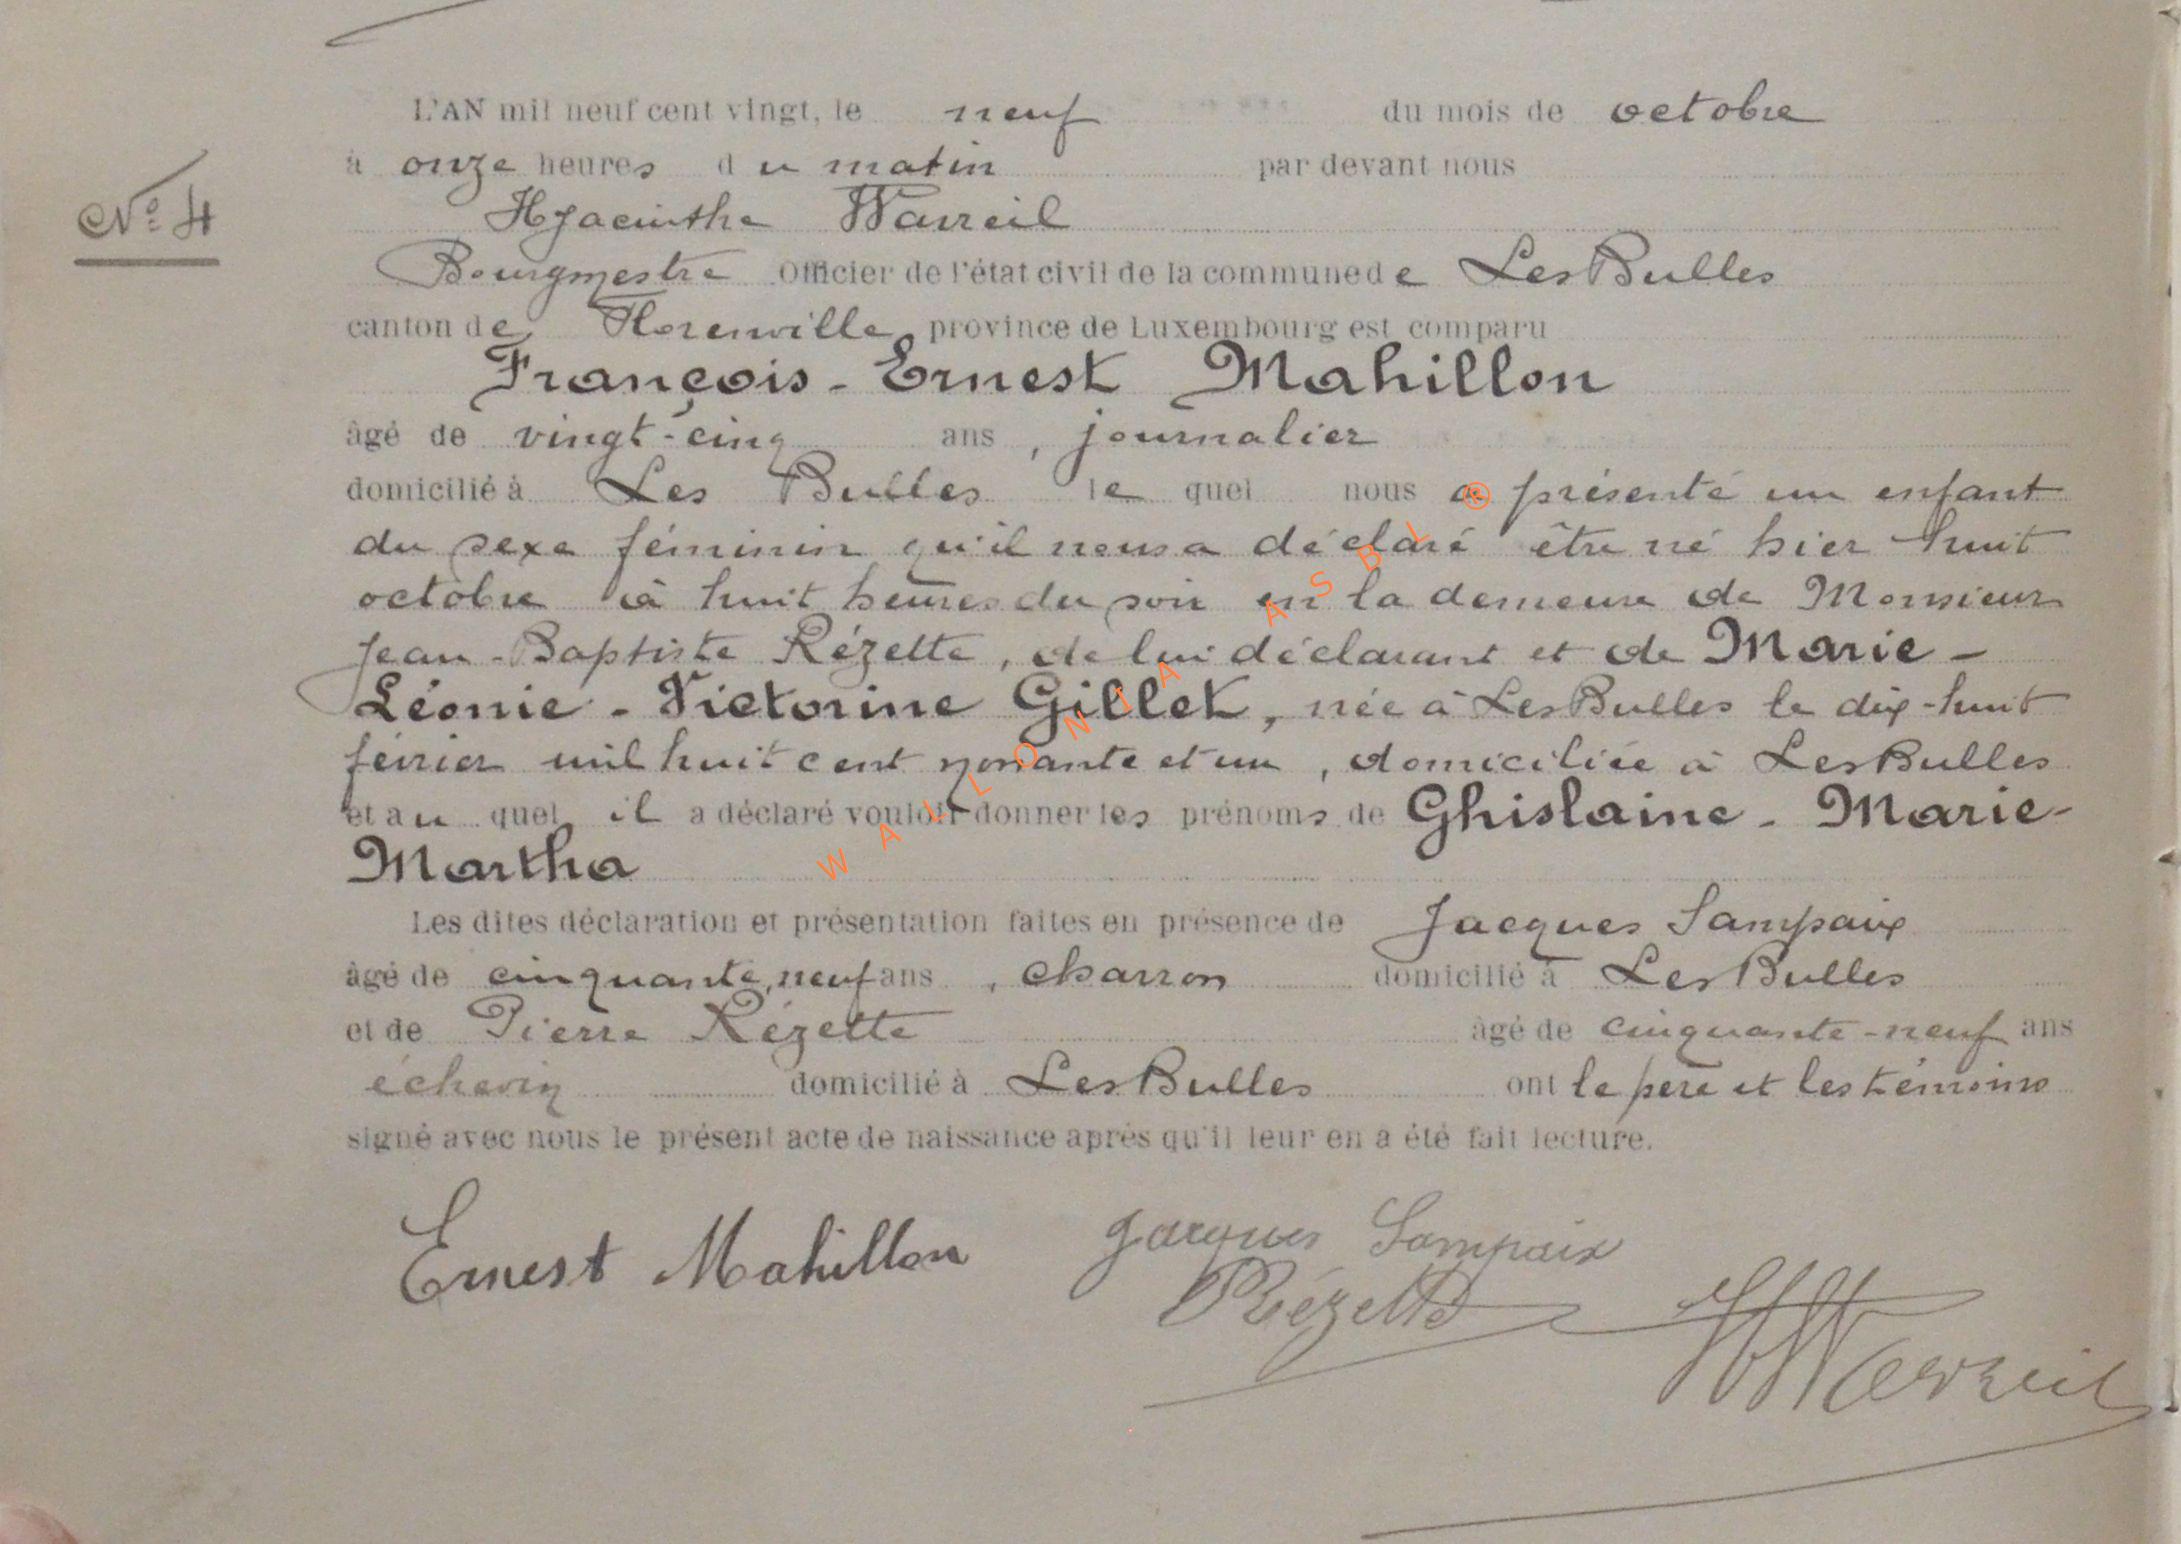 L'AN mil neuf cent vingt, le neuf du mois de octobre
à onze heures du matin par devant nous
N° 4
Hyacinthe Wavreil
Bourgmestre Officier de l'état civil de la commune de Les Bulles
canton de Florenville province de Luxembourg est comparu
François - Ernest Mahillon
âgé de vingt-cinq ans, journalier
domicilié à Les Bulles le quel nous a présenté un enfant
du sexe féminin qu'il nous a déclaré être né hier huit
octobre à huit heures du soir en la demeure de Monsieur
Jean-Baptiste Rézette, de lui déclarant et de Marie -
Léonie - Victorine Gillet, née à Les Bulles le dix-huit
février mil huit cent nonante et un, domiciliée à Les Bulles
et au quel il a déclaré vouloir donner les prénoms de Ghislaine - Marie-
Martha
Les dites déclaration et présentation faites en présence de Jacques Sampaix
âgé de cinquante-neuf ans, charron domicilié à Les Bulles
et de Pierre Rézette âgé de cinquante-neuf ans
échevin domicilié à Les Bulles ont le père et les témoins
signé avec nous le présent acte de naissance après qu'il leur en a été fait lecture.
Ernest Mahillon
Jacques Sampaix
PRézette
HWavreil
WALLONIA ASBL ®